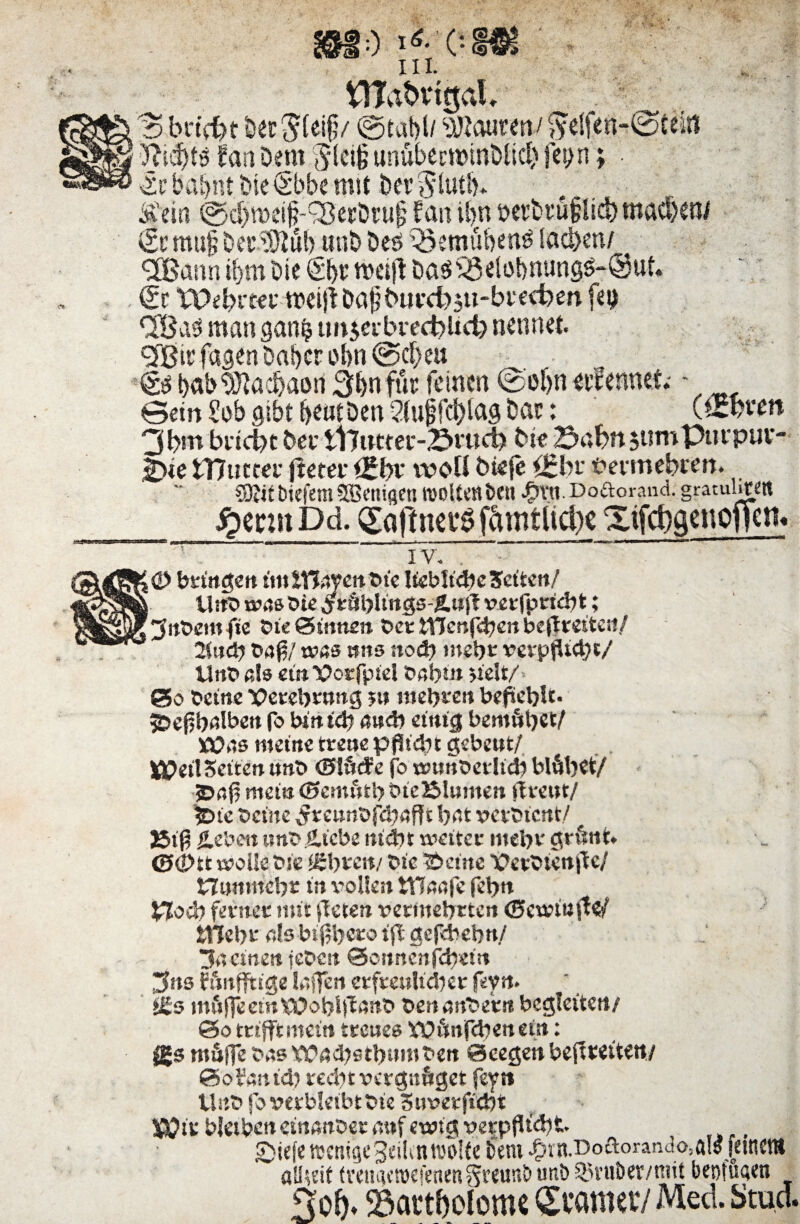 :) 16. (:
III.
Madrigal.
ES bricht der Fleiß/ Stahl/ Mauren/ Felsen-Stein
Nichts kan dem Fleiß unüberwindlich seyn;
Er bahnt die Ebbe mit der Fluth.
Kein Schweiß-Verdruß kan ihn verdrüßlich machen/
Er muß der Müh und des Bemühens lachen/
Wann ihm die Ehr weist das Belohnungs-Gut.
Er Wehrter weist daß durch zu-brechen sey
Was man gantz unzerbrechlich nennet.
Wir sagen daher ohn Scheu
Es hab Machaon Ihn für seinen Sohn erkennet.
Sein Lob gibt heut den Außschlag dar: (Ehren
Ihm bricht der Mutter-Bruch die Bahn zum Purpur-
Die Mutter steter Ehr woll diese Ehr vermehren.
Mit diesem Wenigen wolten den Hrn. Doctorand. gratuliren
Herrn Dd. Castners sämtliche Tischgenossen.
IV.
SO bringen im Mayen die liebliche Zeiten/
Und was die Frühlings-Lust verspricht;
Indem sie die Sinnen der Menschen bestreiten/
Auch daß/ was uns noch mehr verpflicht/
Und als ein Vorspiel dahin zielt/
So deine Verehrung zu mehren befiehlt.
Deßhalben so bin ich auch einig bemühet/
Was meine treue pflicht gebeut/
Weil Zeiten und Glücke so wunderlich blühet/
Daß mein Gemüth die Blumen streut/
Die deine Freundschafft hat verdient/
Biß Leben und Liebe nicht weiter mehr grünt.
GOtt wolle die Ehren/ die Deine Verdienste/
Nunmehr in vollen Maase sehn
Noch ferner mit steten vermehrten Gewinste/
Mehr als bißhero ist geschehn/
Ja einen jeden Sonnenschein
Ins künfftige lassen erfreulicher seyn.
Es müsse ein Wohlstand den andern begleiten/
So trifft mein treues Wünschen ein:
Es müsse das Wachsthum den Seegen bestreiten/
So kan ich recht vergnüget seyn
Und so verbleibt die Zuversicht
Wir bleiben einander auf ewig verpflicht.
Diese wenige Zeilen wolte dem Hrn. Doctorando, als seinem
allzeit treugewesenen Freund und Bruder/ mit beyfügen
Joh. Bartholome Cramer/ Med. Stud.